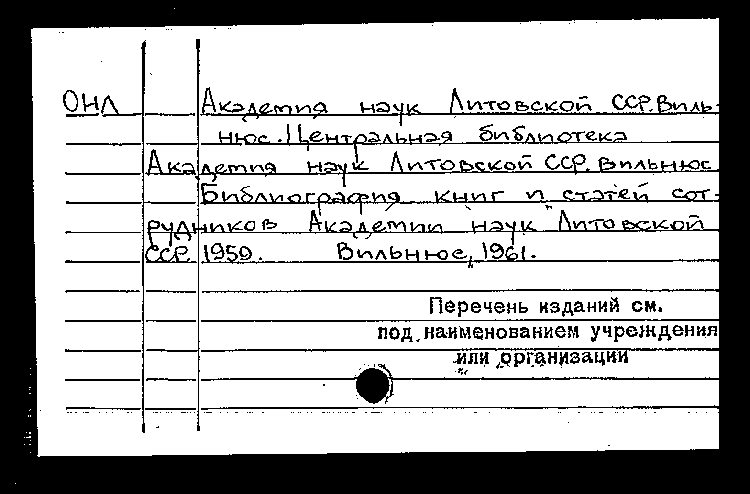 ОНЛ Академия наук Литовской ССР. Виль-
нюс. Центральная библиотека
Академия наук Литовской ССР. Вильнюс
Библиография книг и статей сот-
рудников Академии наук Литовской
ССР. 1959. Вильнюс, 1961.
Перечень изданий см.
под наименованием учреждения
или организации